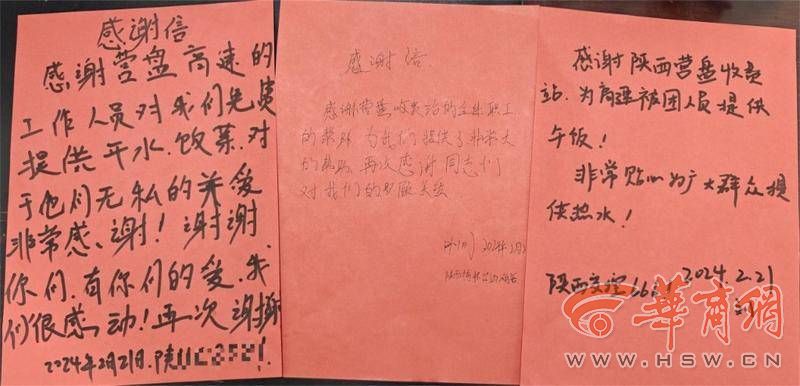 感谢信
感谢营盘高速的
工作人员对我们免费
提供开水.饭菜.对
于他们无私的关爱
非常感谢！谢谢
你们.有你们的爱.我
们很感动！再次谢谢！
2024年2月21日.陕
感谢信.
感谢营盘收费站的全体职工
的帮助 为我们提供了非常大
的帮助.再次感谢同志们
对我们的
感谢陕西营盘收费
站.为高速被困人员提供
午饭！
非常贴心为广大群众提
供热水！
陕西安 2024.2.21
华商网
WWW.HSW.CN